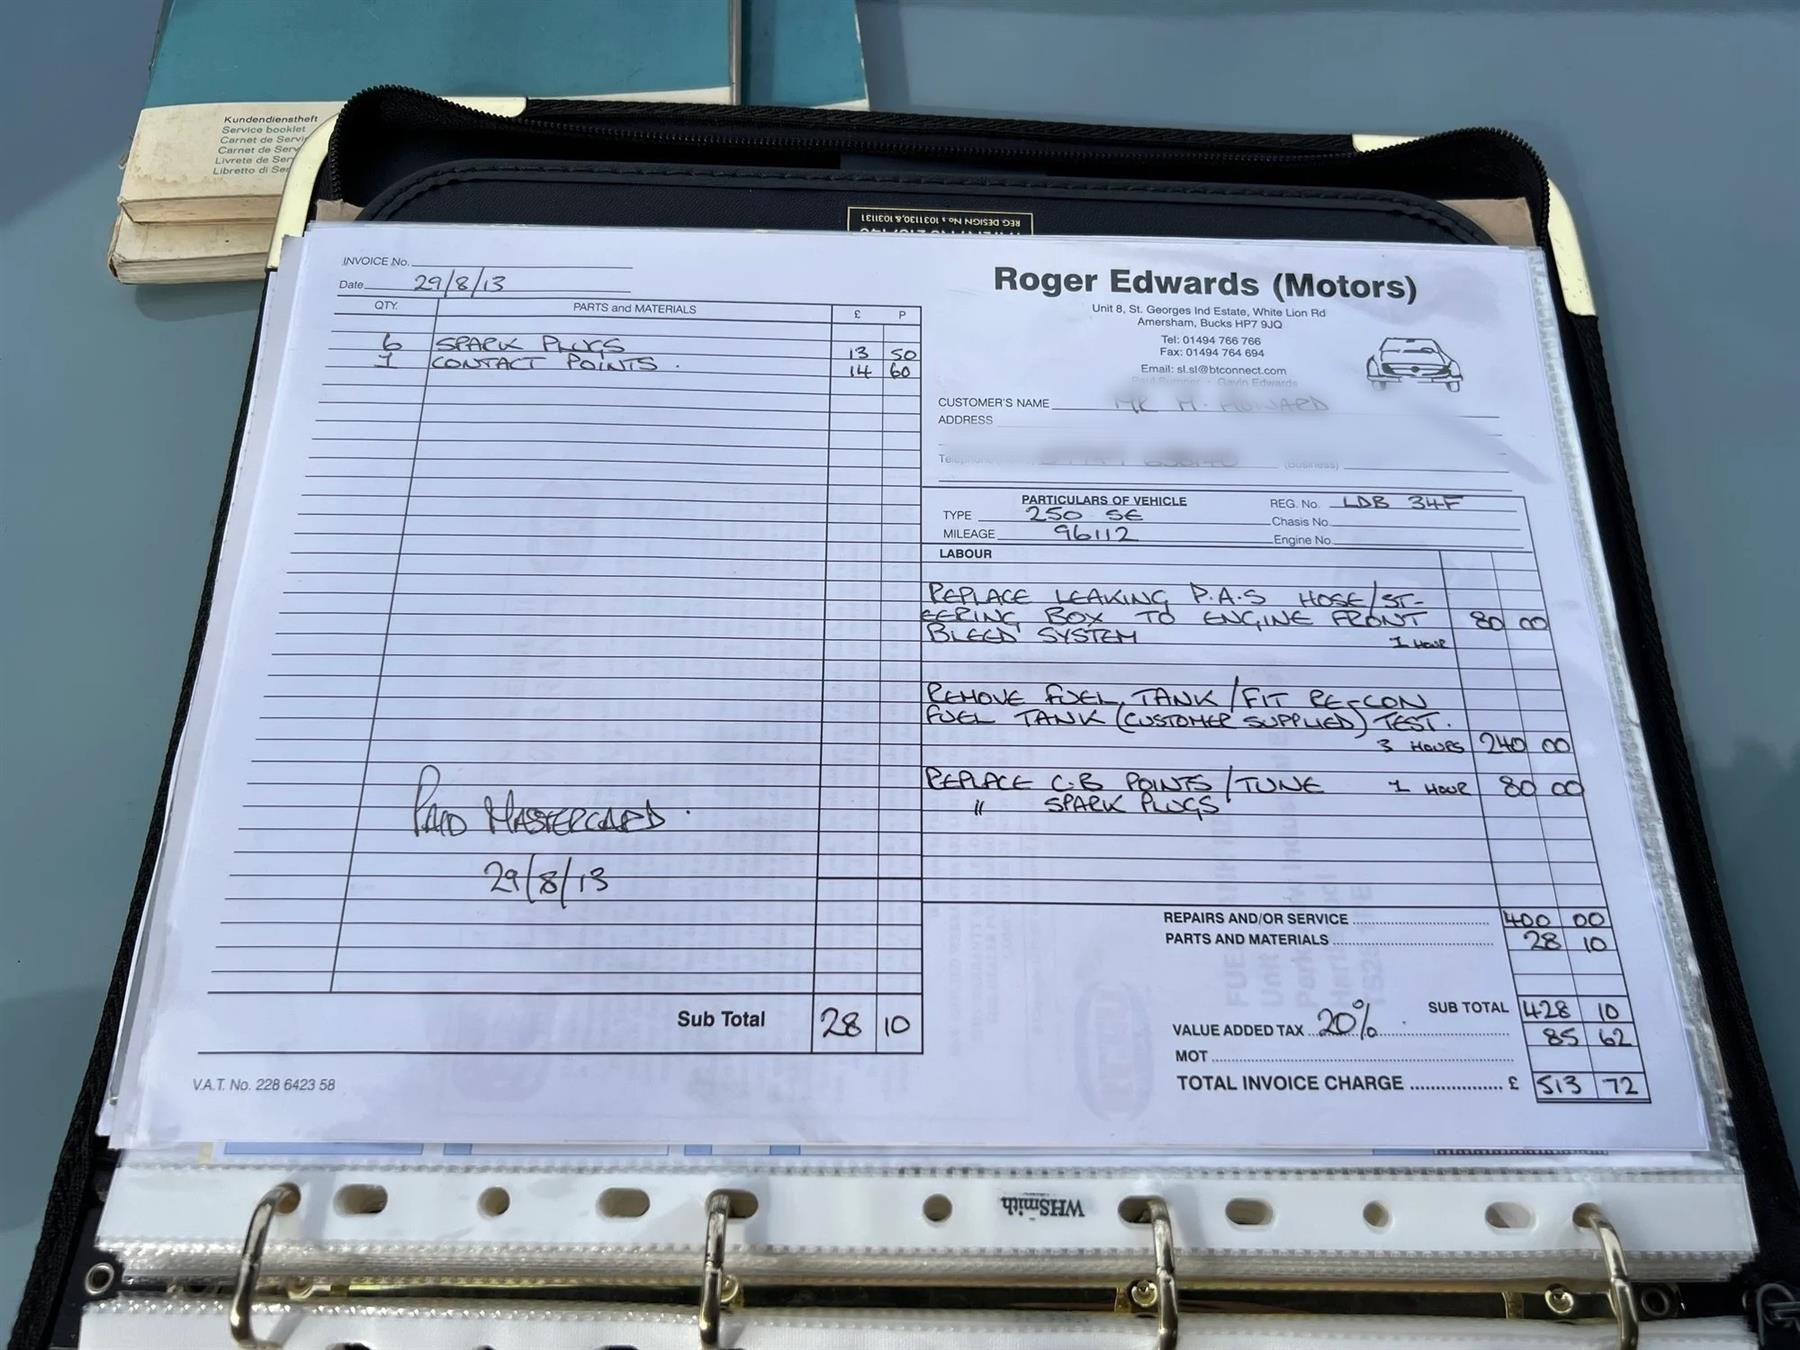 Kundendienstheft
Service booklet
Carnet de
Carnet de
Livrete de
Libretto di
REG DESIGN No s 1031130,& 1031131
INVOICE No.
Date 29/8/13
QTY. PARTS and MATERIALS £ P
6 SPARK PLUGS 13 50
1 CONTACT POINTS. 14 60
PAID MASTERCARD.
29/8/13
Sub Total 28 10
V.A.T. No. 228 6423 58
Roger Edwards (Motors)
Unit 8, St. Georges Ind Estate, White Lion Rd
Amersham, Bucks HP7 9JQ
Tel: 01494 766 766
Fax: 01494 764 694
Email: sl.sl@btconnect.com
Paul Sumner • Gavin Edwards
CUSTOMER'S NAME MR M. HOWARD
ADDRESS
Telephone (Business)
PARTICULARS OF VEHICLE REG. No. LDB 34F
TYPE 250 SE Chasis No.
MILEAGE 96112 Engine No.
LABOUR
REPLACE LEAKING P.A.S HOSE/ST-
EERING BOX TO ENGINE FRONT 80 00
BLEED SYSTEM 1 HOUR
REMOVE FUEL TANK/FIT RE-CON
FUEL TANK (CUSTOMER SUPPLIED) TEST.
3 HOURS 240 00
REPLACE C.B POINTS/TUNE 1 HOUR 80 00
" SPARK PLUGS
REPAIRS AND/OR SERVICE 400 00
PARTS AND MATERIALS 28 10
SUB TOTAL 428 10
VALUE ADDED TAX 20% 85 62
MOT
TOTAL INVOICE CHARGE £ 513 72
WHSmith